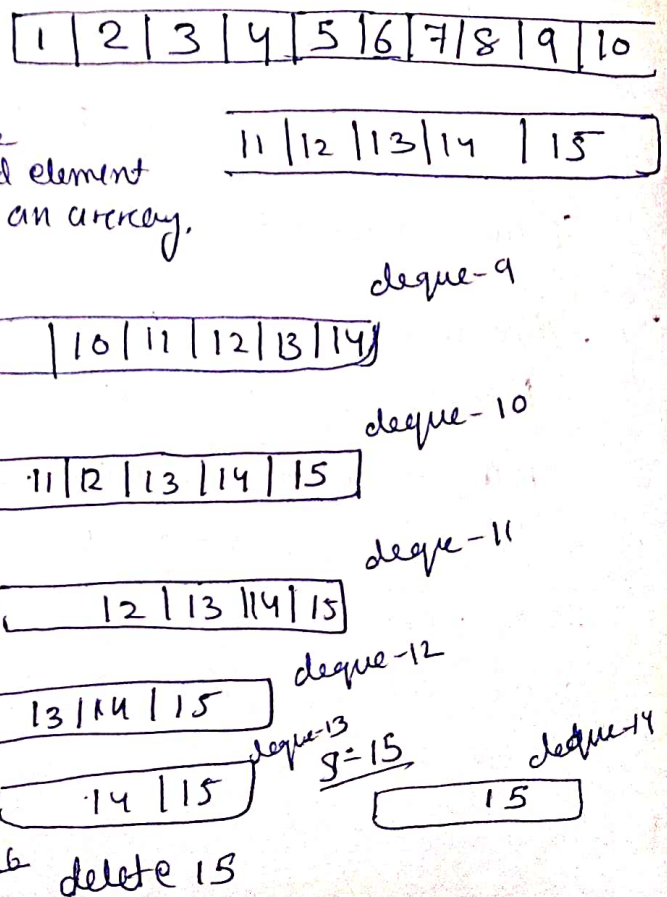 1 | 2 | 3 | 4 | 5 | 6 | 7 | 8 | 9 | 10
11 | 12 | 13 | 14 | 15
element
an array.
deque-9
| 10 | 11 | 12 | 13 | 14
deque-10
11 | 12 | 13 | 14 | 15
deque-11
12 | 13 | 14 | 15
deque-12
13 | 14 | 15
deque-13
14 | 15
g=15
deque-14
15
delete 15